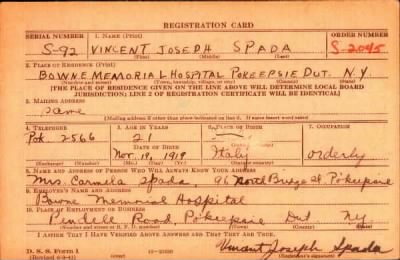 REGISTRATION CARD
SERIAL NUMBER 1. NAME (Print) ORDER NUMBER
S-92 VINCENT JOSEPH SPADA S-2045
(First) (Middle) (Last)
2. PLACE OF RESIDENCE (Print)
BOWNE MEMORIAL HOSPITAL POKEEPSIE DUT. N.Y.
(Number and street) (Town, township, village, or city) (County) (State)
[THE PLACE OF RESIDENCE GIVEN ON THE LINE ABOVE WILL DETERMINE LOCAL BOARD
JURISDICTION; LINE 2 OF REGISTRATION CERTIFICATE WILL BE IDENTICAL]
3. MAILING ADDRESS
same
[Mailing address if other than place indicated on line 2. If same insert word same]
4. TELEPHONE 5. AGE IN YEARS 6. PLACE OF BIRTH 7. OCCUPATION
Pok. 2566 21
DATE OF BIRTH
Nov. 19, 1919 Italy orderly
(Exchange) (Number) (Mo.) (Day) (Yr.) (State or county)
8. NAME AND ADDRESS OF PERSON WHO WILL ALWAYS KNOW YOUR ADDRESS
Mrs. Carmela Spada, 96 North Bridge St. Pokeepsie
9. EMPLOYER'S NAME AND ADDRESS
Bowne Memorial Hospital
10. PLACE OF EMPLOYMENT OR BUSINESS
Pendell Road, Pokeepsie Dut NY
(Number and street or R. F. D. number) (Town) (County) (State)
I AFFIRM THAT I HAVE VERIFIED ABOVE ANSWERS AND THAT THEY ARE TRUE.
D. S. S. Form 1 Vincent Joseph Spada
(Revised 6-9-41) (Registrant's signature)